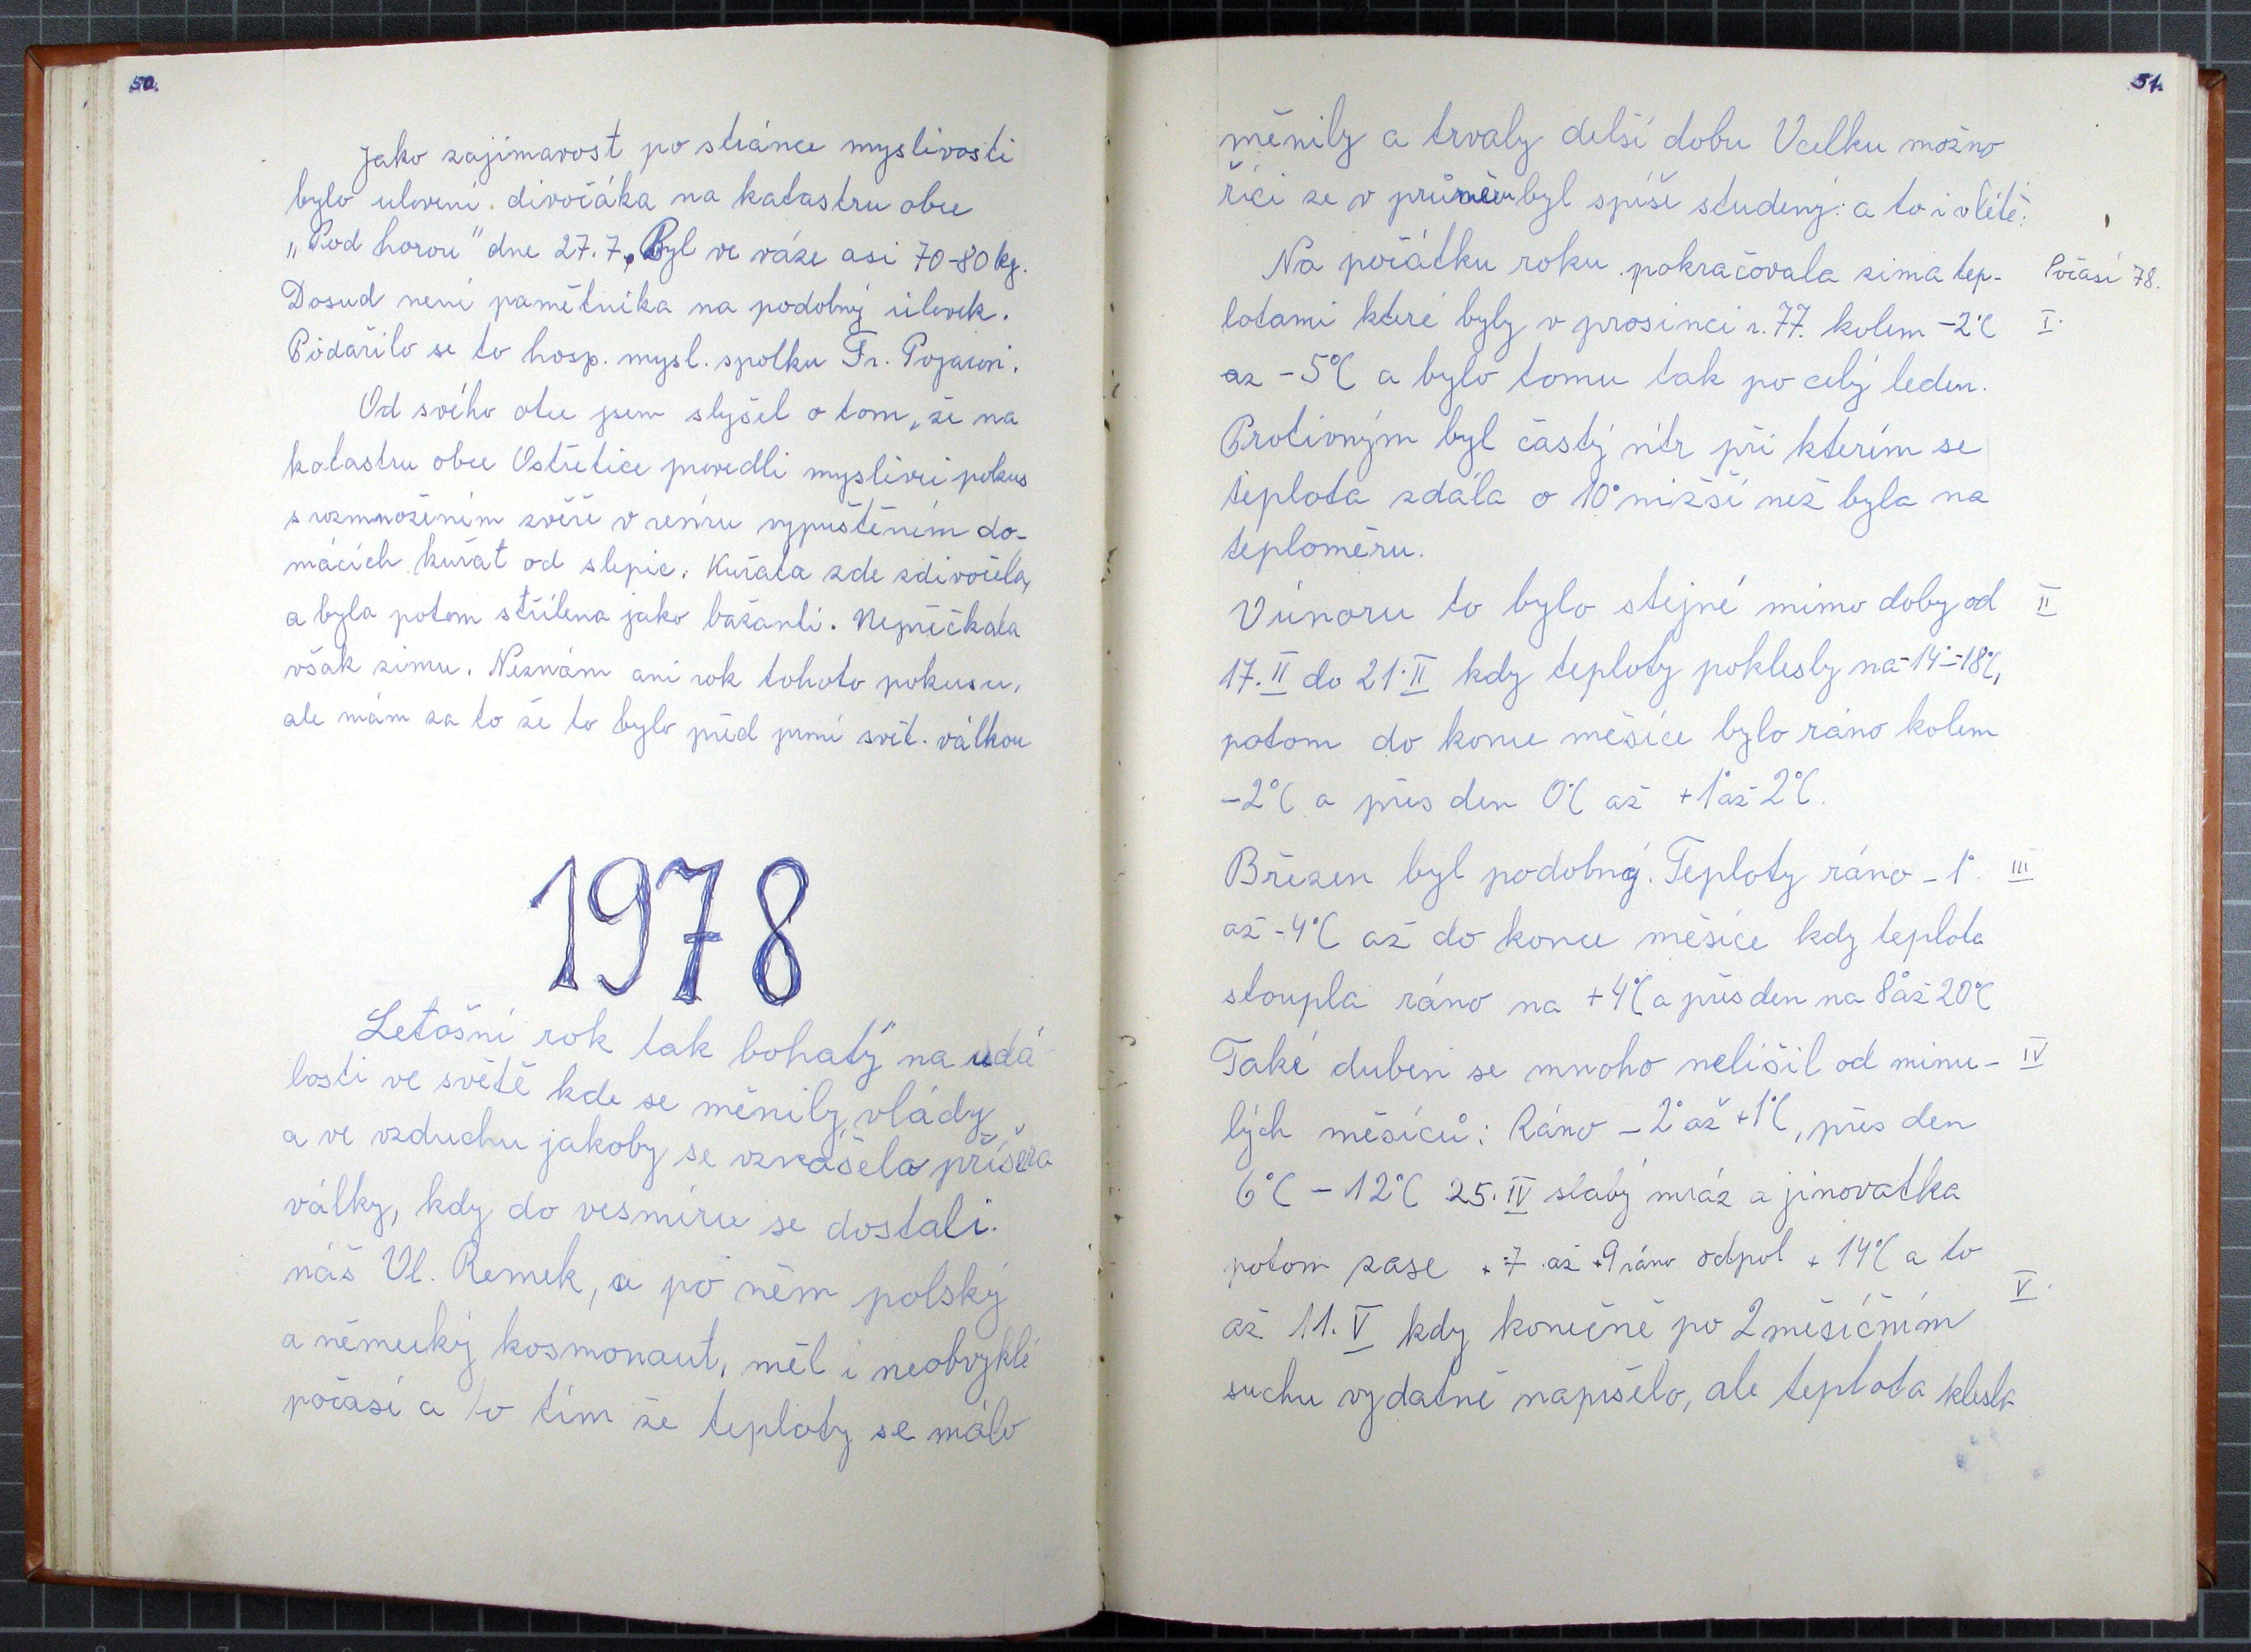 50.
Jako zajímavost po stránce myslivosti
bylo ulovení divočáka na katastru obce
„Pod horou" dne 27.7. Byl ve váze asi 70-80 kg.
Dosud není pamětníka na podobný úlovek.
Podařilo se to hosp. mysl. spolku Fr.
Od svého otce jsem slyšel o tom, že na
katastru obce Ostřetice provedli myslivci pokus
s rozmnožením zvěře v revíru vypuštěním do-
mácích kuřat od slepic. Kuřata zde zdivočela,
a byla potom střílena jako bažanti. Nepřečkala
však zimu. Neznám ani rok tohoto pokusu,
ale mám za to že to bylo před první svět. válkou
1978
Letošní rok tak bohatý na udá
losti ve světě kde se měnily vlády
a ve vzduchu jakoby se vznášela příšera
války, kdy do vesmíru se dostali
náš Vl. Remek, a po něm polský
a německý kosmonaut, měl i neobvyklé
počasí a to tím že teploty se málo
51.
měnily a trvaly delší dobu Vcelku možno
říci že v průměru byl spíše studený: a to i v létě.
Na počátku roku pokračovala zima tep- Počasí 78.
lotami které byly v prosinci r. 77. kolem -2°C I.
až -5°C a bylo tomu tak po celý leden.
Protivným byl častý vítr při kterém se
teplota zdála o 10° nižší než byla na
teploměru.
V únoru to bylo stejné mimo doby od II
17. II do 21. II kdy teploty poklesly na -14°-18°C,
potom do konce měsíce bylo ráno kolem
-2°C a přes den 0°C až +1° až 2°C.
Březen byl podobný. Teploty ráno -1°. III
až -4°C až do konce měsíce kdy teplota
stoupla ráno na +4°C a přes den na 8° až 20°C
Také duben se mnoho nelišil od minu- IV
lých měsíců: Ráno -2° až +1°C, přes den
6°C - 12°C 25. IV slabý mráz a jinovatka
potom zase +7 až +9 ráno odpol +14°C a to
až 11. V kdy konečně po 2 měsíčním V.
suchu vydatně napršelo, ale teplota klesla